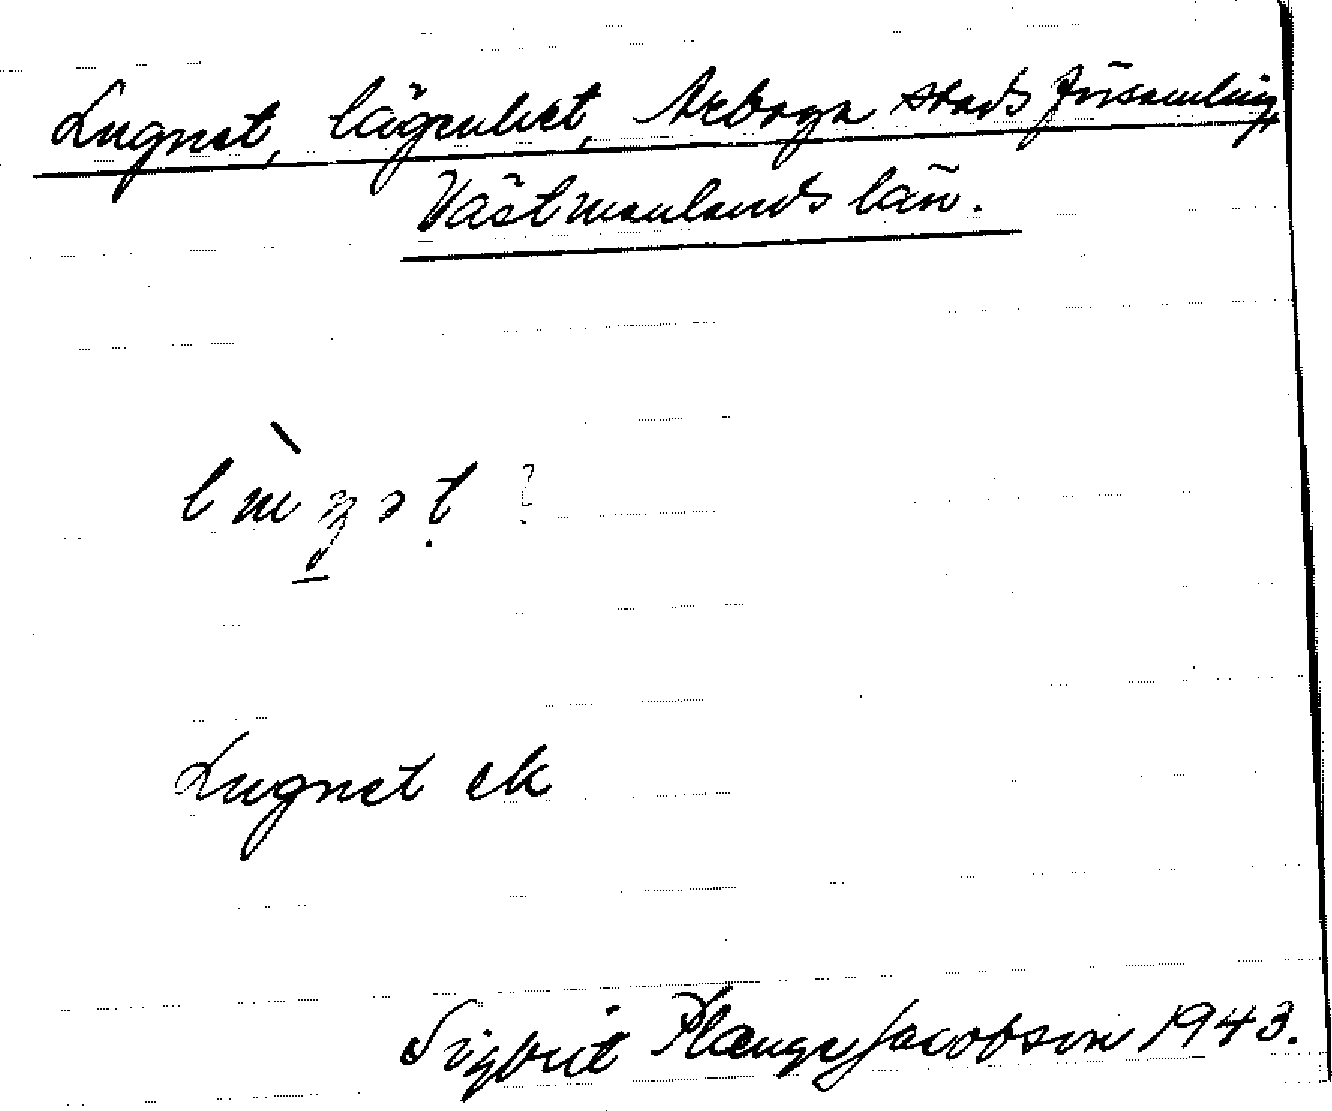 Lugnet, lägenhet, Arboga stads församling,
Västmanlands län.
Lugnet ek
Sigbrit Plænge Jacobson 1943.